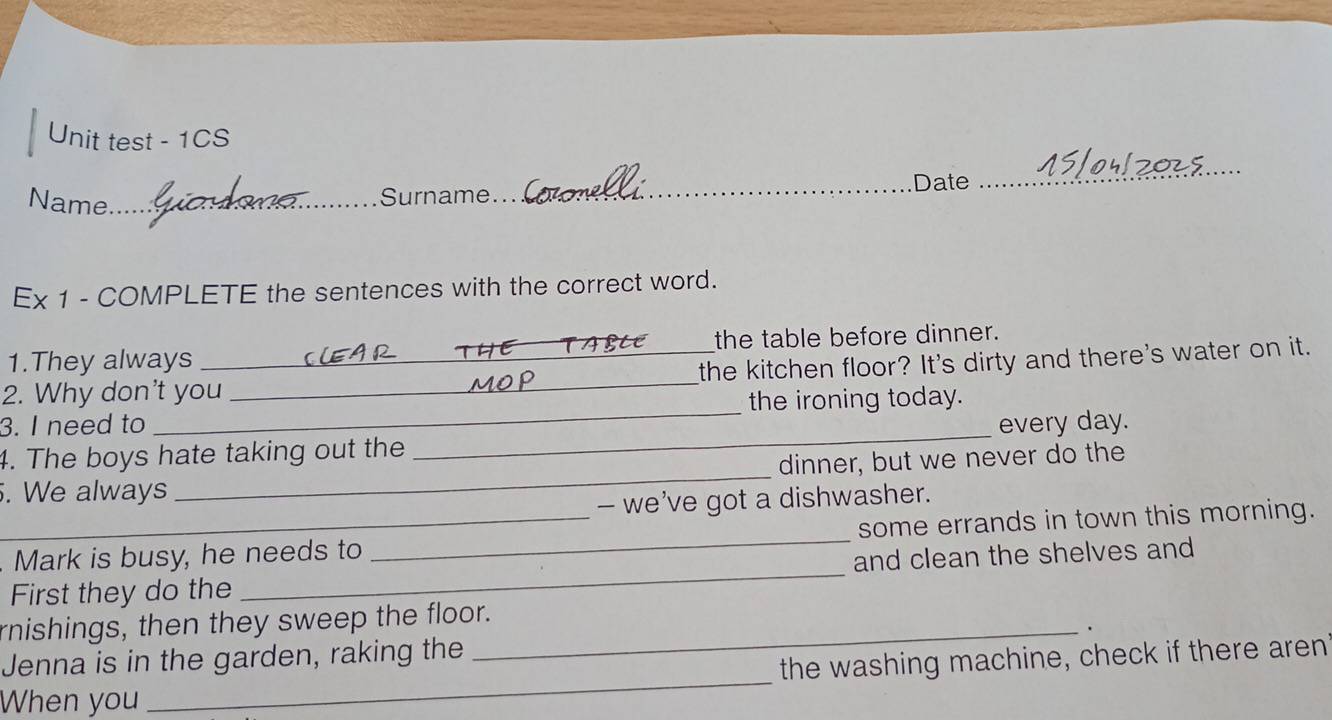 Unit test - 1CS
Name......Giordano............Surname....Coronelli.................................Date ....15/04/2025......
Ex 1 - COMPLETE the sentences with the correct word.
1.They always CLEAR THE TABLE the table before dinner.
2. Why don't you MOP the kitchen floor? It's dirty and there's water on it.
3. I need to ____ the ironing today.
4. The boys hate taking out the ____ every day.
5. We always ____ dinner, but we never do the
____ – we've got a dishwasher.
. Mark is busy, he needs to ____ some errands in town this morning.
First they do the ____ and clean the shelves and
rnishings, then they sweep the floor.
Jenna is in the garden, raking the ____ .
When you ____ the washing machine, check if there aren'